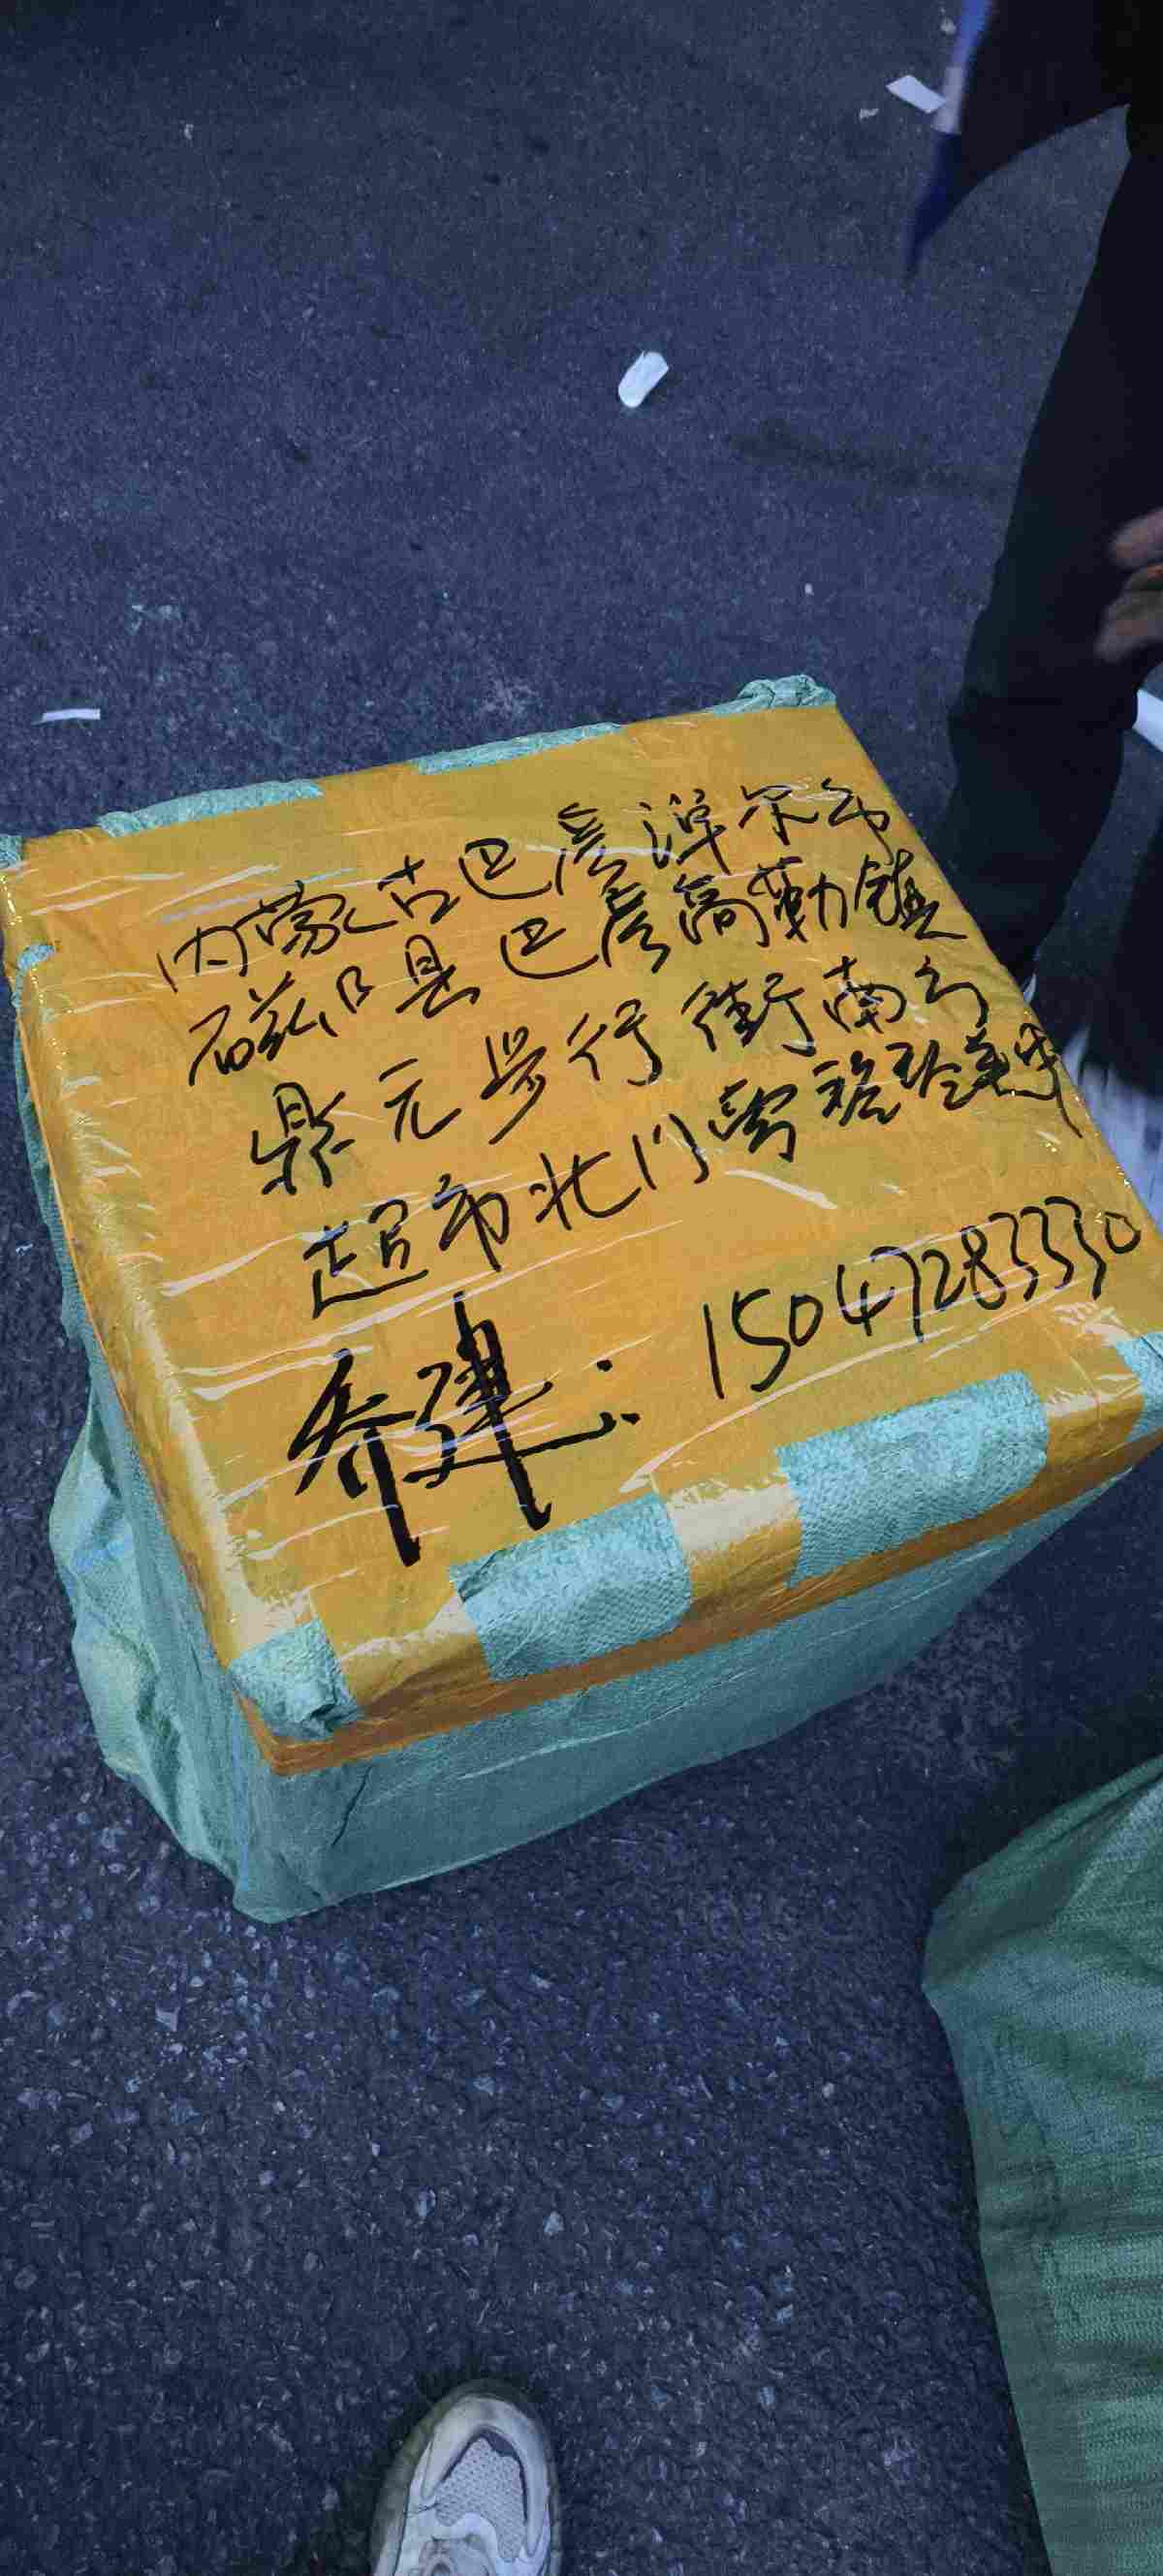 内蒙古巴彦淖尔市
磴口县巴彦高勒镇
鼎元步行街南门
超市北门
乔建：15047283330